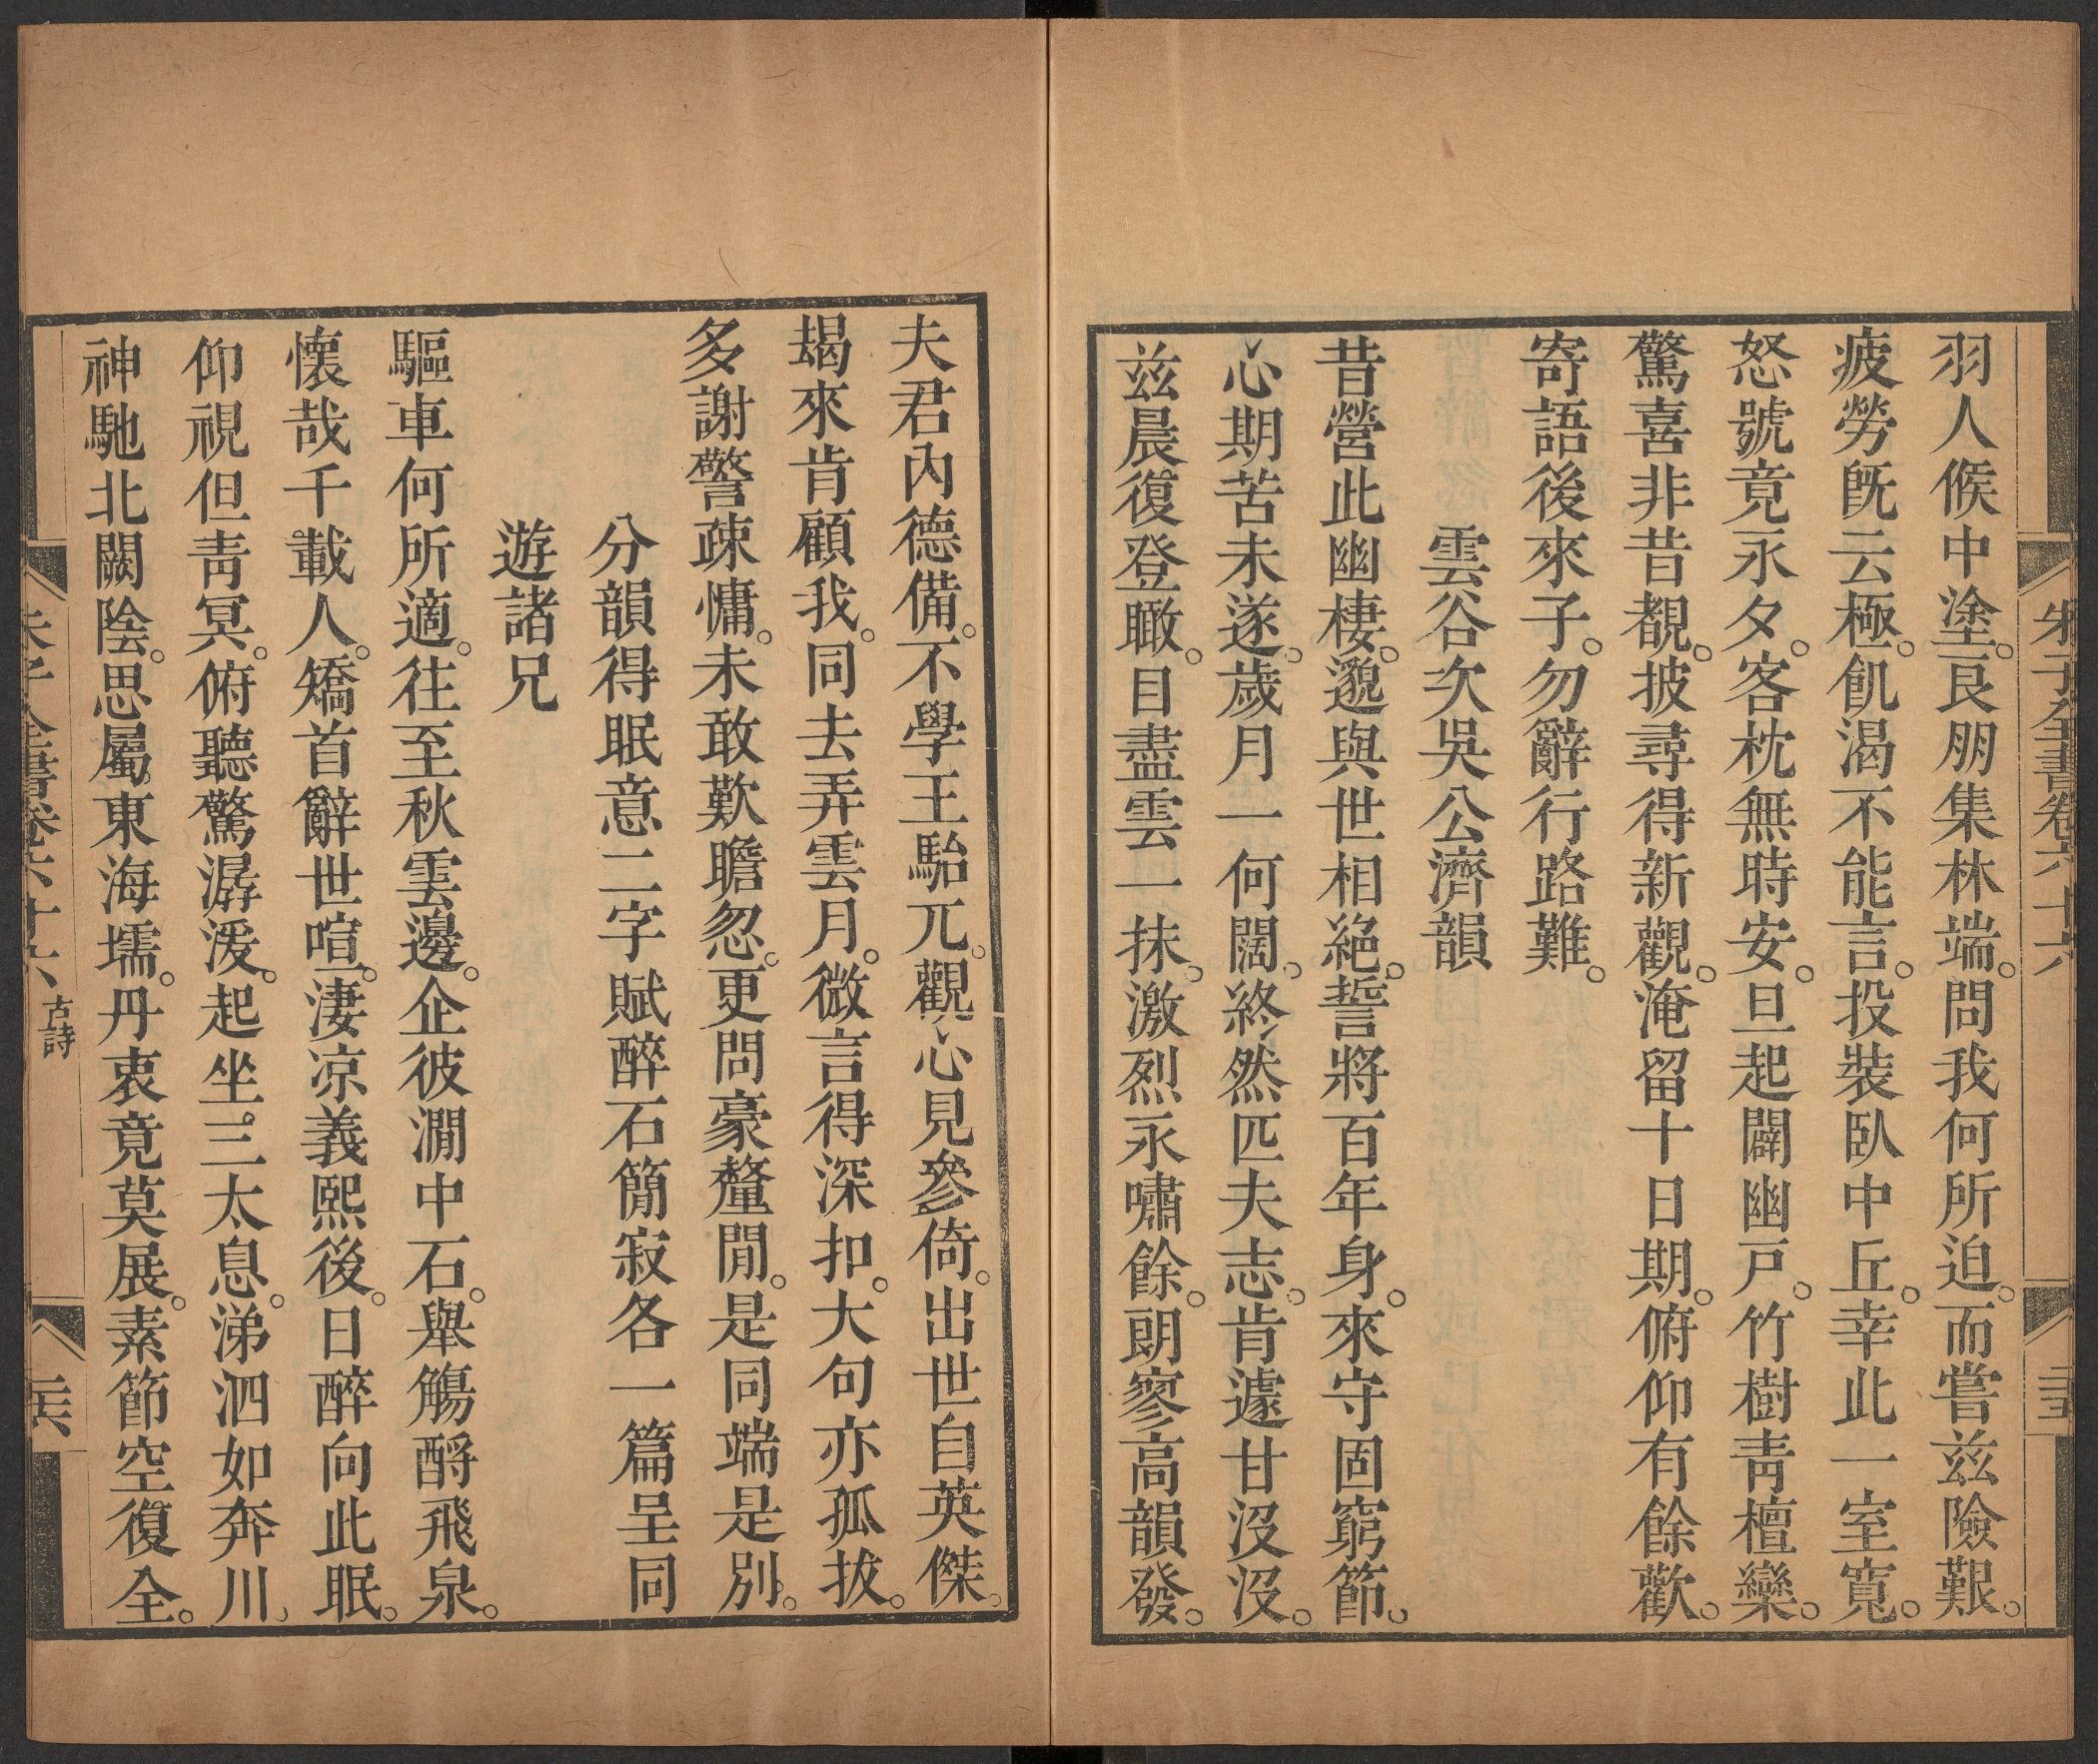 羽人候中塗。艮朋集林端。問我何所迫。而嘗茲險艱。
疲勞旣云極。飢渴不能言。投裝臥中丘。幸此一室寬。
怒號竟永夕。客枕無時安。旦起闢幽戸。竹樹靑檀欒。
驚喜非昔覩。披尋得新觀。淹留十日期。俯仰有餘歡。
寄語後來子。勿辭行路難。
雲谷次吳公濟韻
昔營此幽棲。邈與世相絶。誓將百年身。來守固窮節。
心期苦未遂。歲月一何闊。終然匹夫志。肯遽甘沒沒。
茲晨復登瞰。目盡雲一抹。激烈永嘯餘。朗寥高韻發。
朱子全書卷六十六
夫君內德備。不學王駘兀。觀心見參倚。出世自英傑。
朅來肯顧我。同去弄雲月。微言得深扣。大句亦孤拔。
多謝警疎慵。未敢歎瞻忽。更問豪釐閒。是同端是別。
分韻得眠意二字賦醉石簡寂各一篇呈同
遊諸兄
驅車何所適。往至秋雲邊。企彼澗中石。舉觴酹飛泉。
懷哉千載人。矯首辭世喧。淒凉義熙後。日醉向此眠。
仰視但靑冥。俯聽驚潺湲。起坐三太息。涕泗如奔川。
神馳北闕陰。思屬東海壖。丹衷竟莫展。素節空復全。
朱子全書卷六十六 古詩